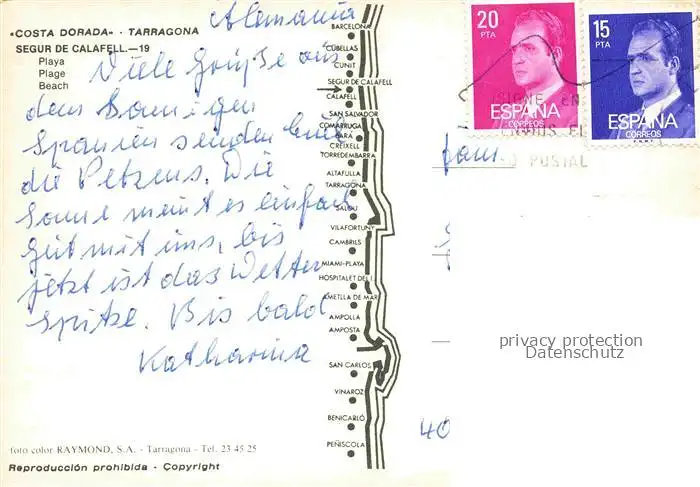 «COSTA DORADA» · TARRAGONA
SEGUR DE CALAFELL.—19
Playa
Plage
Beach
Alemania
Viele Grüße aus
dem Sonnigen
Spanien senden Euch
die Petzens. Die
Sonne meint es einfach
gut mit uns, bis
jetzt ist das Wetter
spitze. Bis bald
Katharina
BARCELONA
CUBELLAS
CUNIT
SEGUR DE CALAFELL
CALAFELL
SAN SALVADOR
COMARRUGA
BARA
CREIXELL
TORREDEMBARRA
ALTAFULLA
TARRAGONA
SALOU
VILAFORTUNY
CAMBRILS
MIAMI-PLAYA
HOSPITALET DEL I.
AMETLLA DE MAR
AMPOLLA
AMPOSTA
SAN CARLOS
VINAROZ
BENICARLÓ
PEÑISCOLA
foto color RAYMOND, S.A. - Tarragona - Tel. 23 45 25
Reproducción prohibida - Copyright
20
PTA
ESPAÑA
CORREOS
15
PTA
ESPAÑA
CORREOS
POSTAL
Fam.
40
privacy protection
Datenschutz